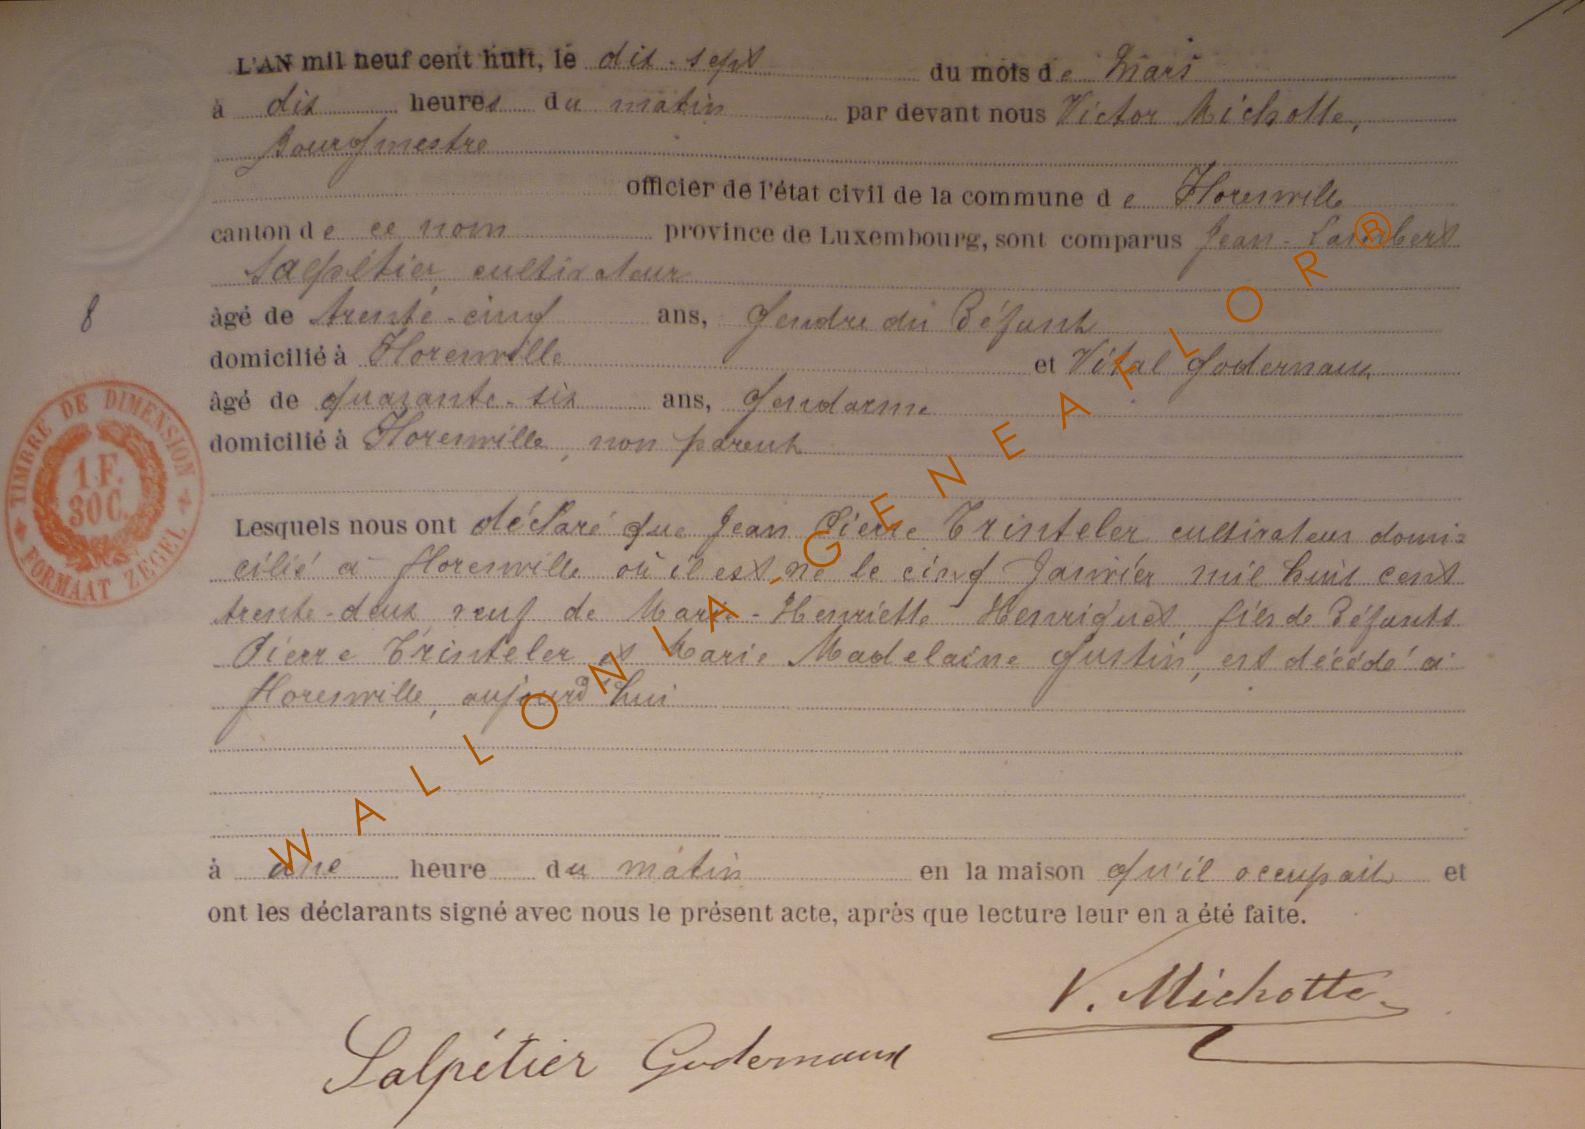 L'AN mil neuf cent huit, le dix-sept du mois de Mars
à dix heures du matin par devant nous Victor Michotte,
Bourgmestre
officier de l'état civil de la commune de Florenville
canton de ce nom province de Luxembourg, sont comparus Jean-Lambert
Salpétier, cultivateur
8
âgé de trente-cinq ans, gendre du défunt
domicilié à Florenville et Vital Godernaux
âgé de quarante-six ans, gendarme
domicilié à Florenville, non parent
TIMBRE DE DIMENSION
1 F.
30 C.
FORMAAT ZEGEL
Lesquels nous ont déclaré que Jean Pierre Trinteler cultivateur domi=
cilié à Florenville où il est né le cinq Janvier mil huit cent
trente-deux veuf de Marie-Henriette Henriquet, fils de défunts
Pierre Trinteler et Marie Madelaine Gustin, est décédé à
Florenville, aujourd'hui
à une heure du matin en la maison qu'il occupait et
ont les déclarants signé avec nous le présent acte, après que lecture leur en a été faite.
V. Michotte
Salpétier Godernaux
WALLONIA-GENEAFLOR®